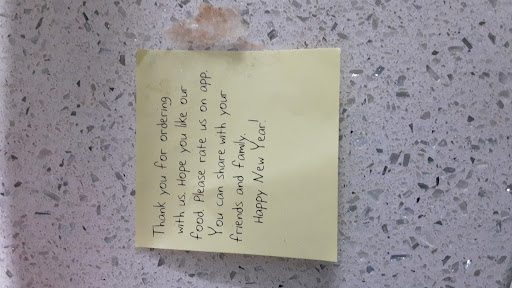 Thank you for ordering
with us. Hope you like our
food. Please rate us on app.
You can share with your
friends and family.
Happy New Year!